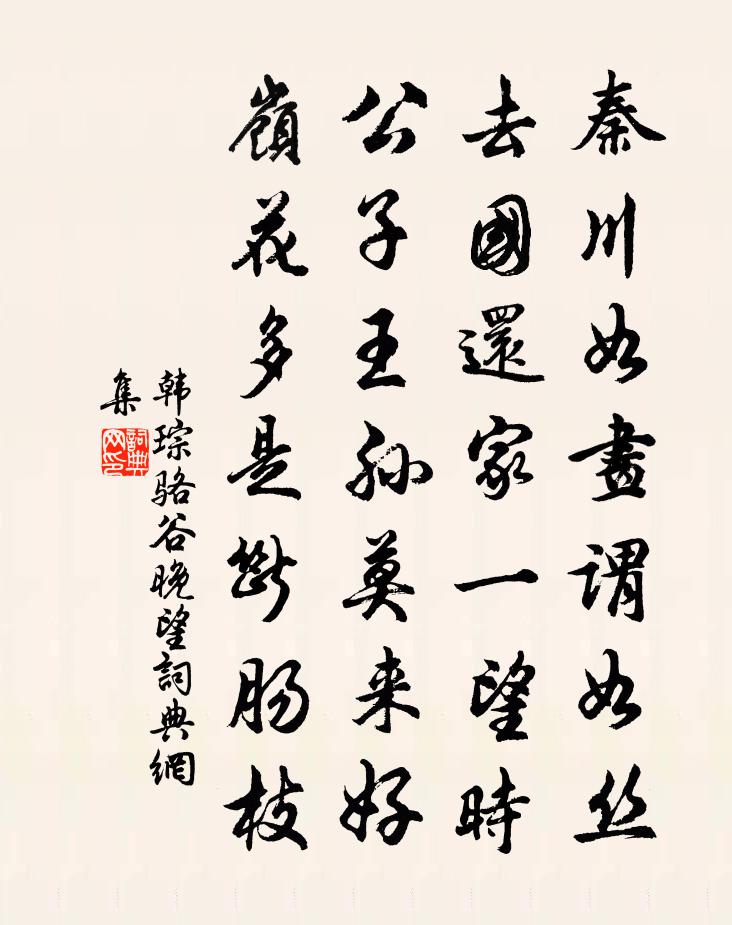 秦川如畫謂如丝
去國還家一望時
公子王孙莫来好
嶺花多是斷肠枝
韩琮骆谷晚望詞典網
集
詞典
网印